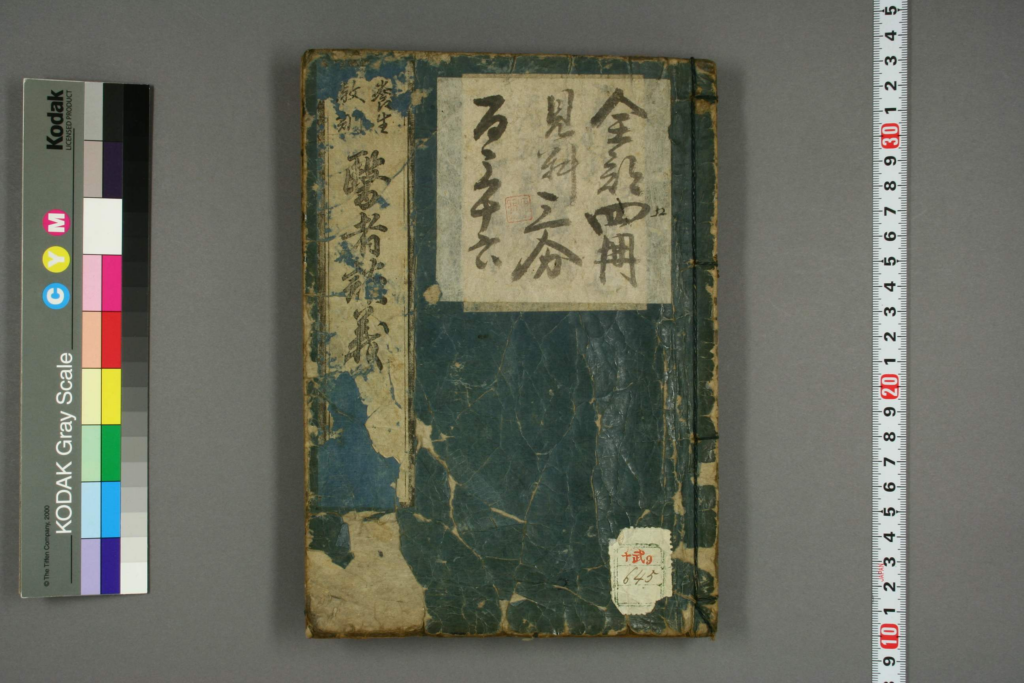 全部四冊
見料三分
百三十六
養生
教訓
醫者談義
十武9
645
Kodak
LICENSED PRODUCT
C Y M
KODAK Gray Scale
© The Tiffen Company, 2000
5 4 3 2 1 30 9 8 7 6 5 4 3 2 1 20 9 8 7 6 5 4 3 2 1 10 9